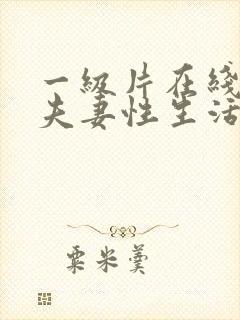 一级片在线
夫妻性生活
粟米羹